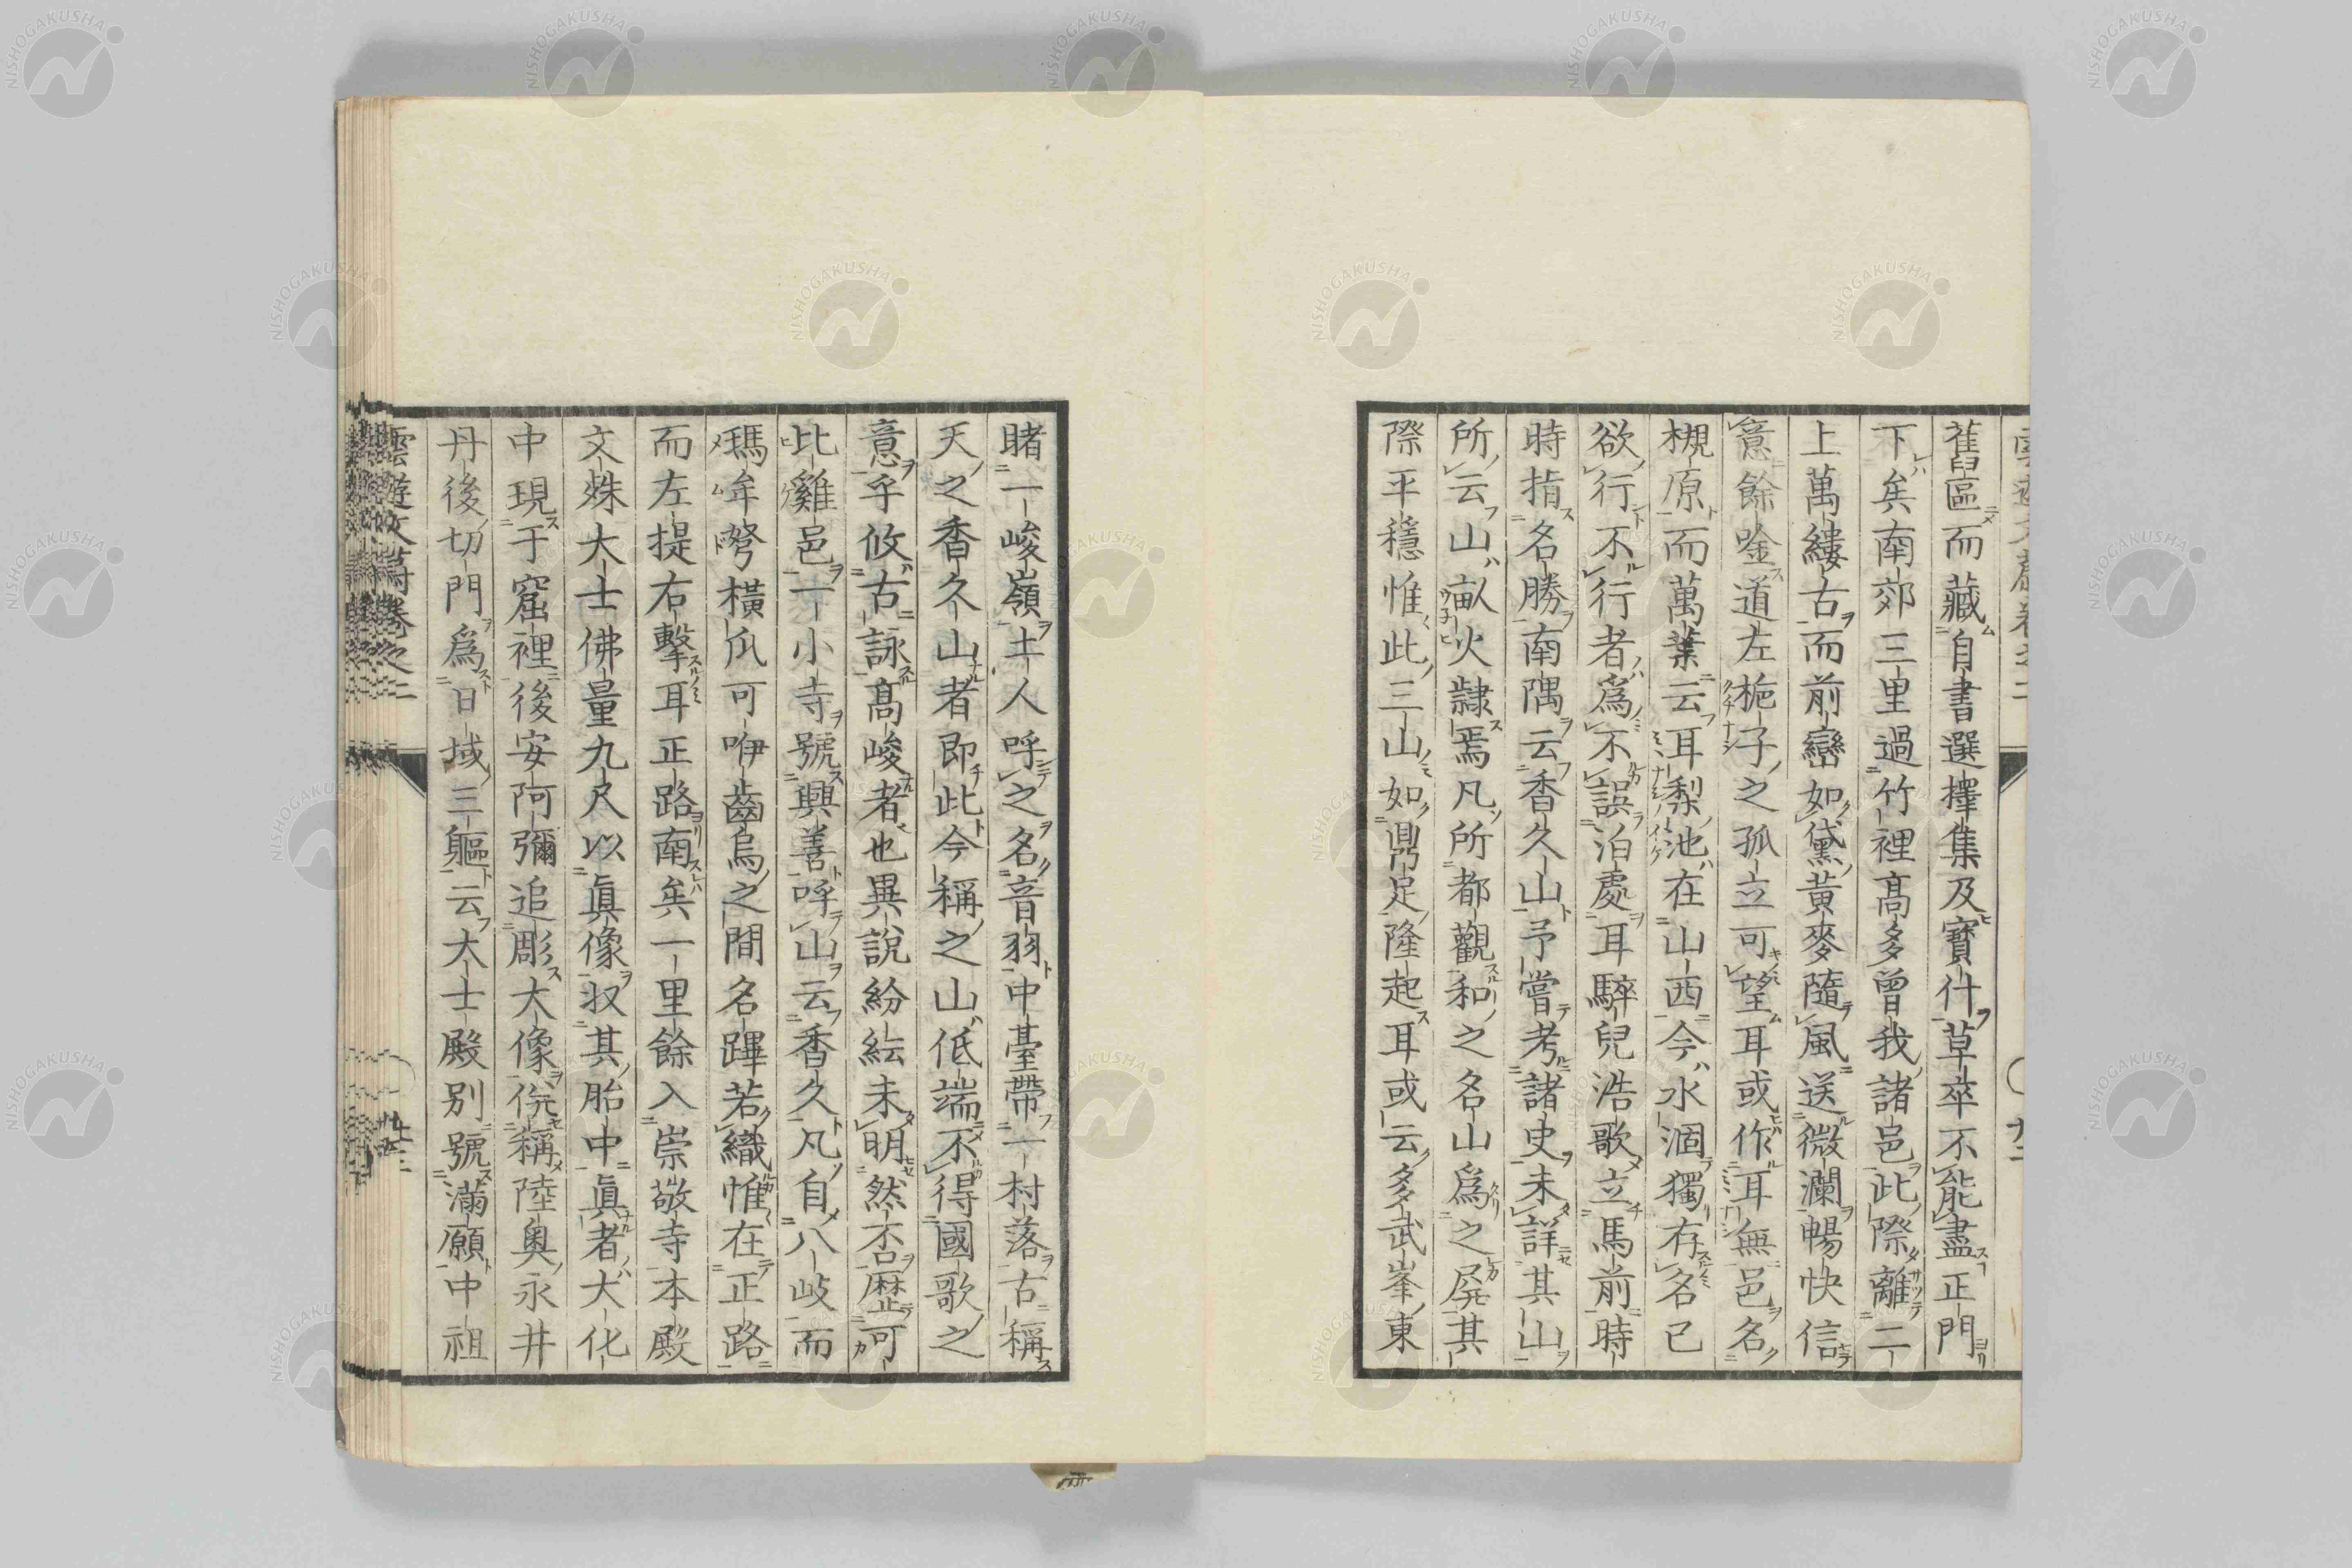 舊區而藏自書選擇集及寶什草卒不能盡正門
下矣南郊三里過竹裡高多曾我諸邑此際離二
上萬縷古而前巒如黛黃麥隨風送微瀾暢快信
意餘唫道左梔子之孤立可望耳或作耳無邑名
槻原而萬葉云耳梨池在山西今水涸獨存名已
欲行不行者爲不誤泊處耳騂兒浩歌立馬前時
時指名勝南隅云香久山予嘗考諸史未詳其山
所云山畝火隷焉凡所都觀和之名山爲之屏其
際平穩惟此三山如鼎足隆起耳或云多武峯東
睹一峻嶺土人呼之名音羽中臺帶一村落古稱
天之香久山者即此今稱之山低端不得國歌之
意乎攸古詠高峻者也異說紛紜未明然否歷可
此雞邑一小寺號興善呼山云香久凡自八岐而
瑪牟弩橫爪可咿齒烏之間名蹕若織惟在正路
而左提右擊耳正路南矣一里餘入崇敬寺本殿
文殊大士佛量九尺以眞像収其胎中眞者大化
中現于窟裡後安阿彌追彫大像俛稱陸奥永井
丹後切門爲日域三軀云大士殿別號滿願中祖
雲遊文蔚卷之二